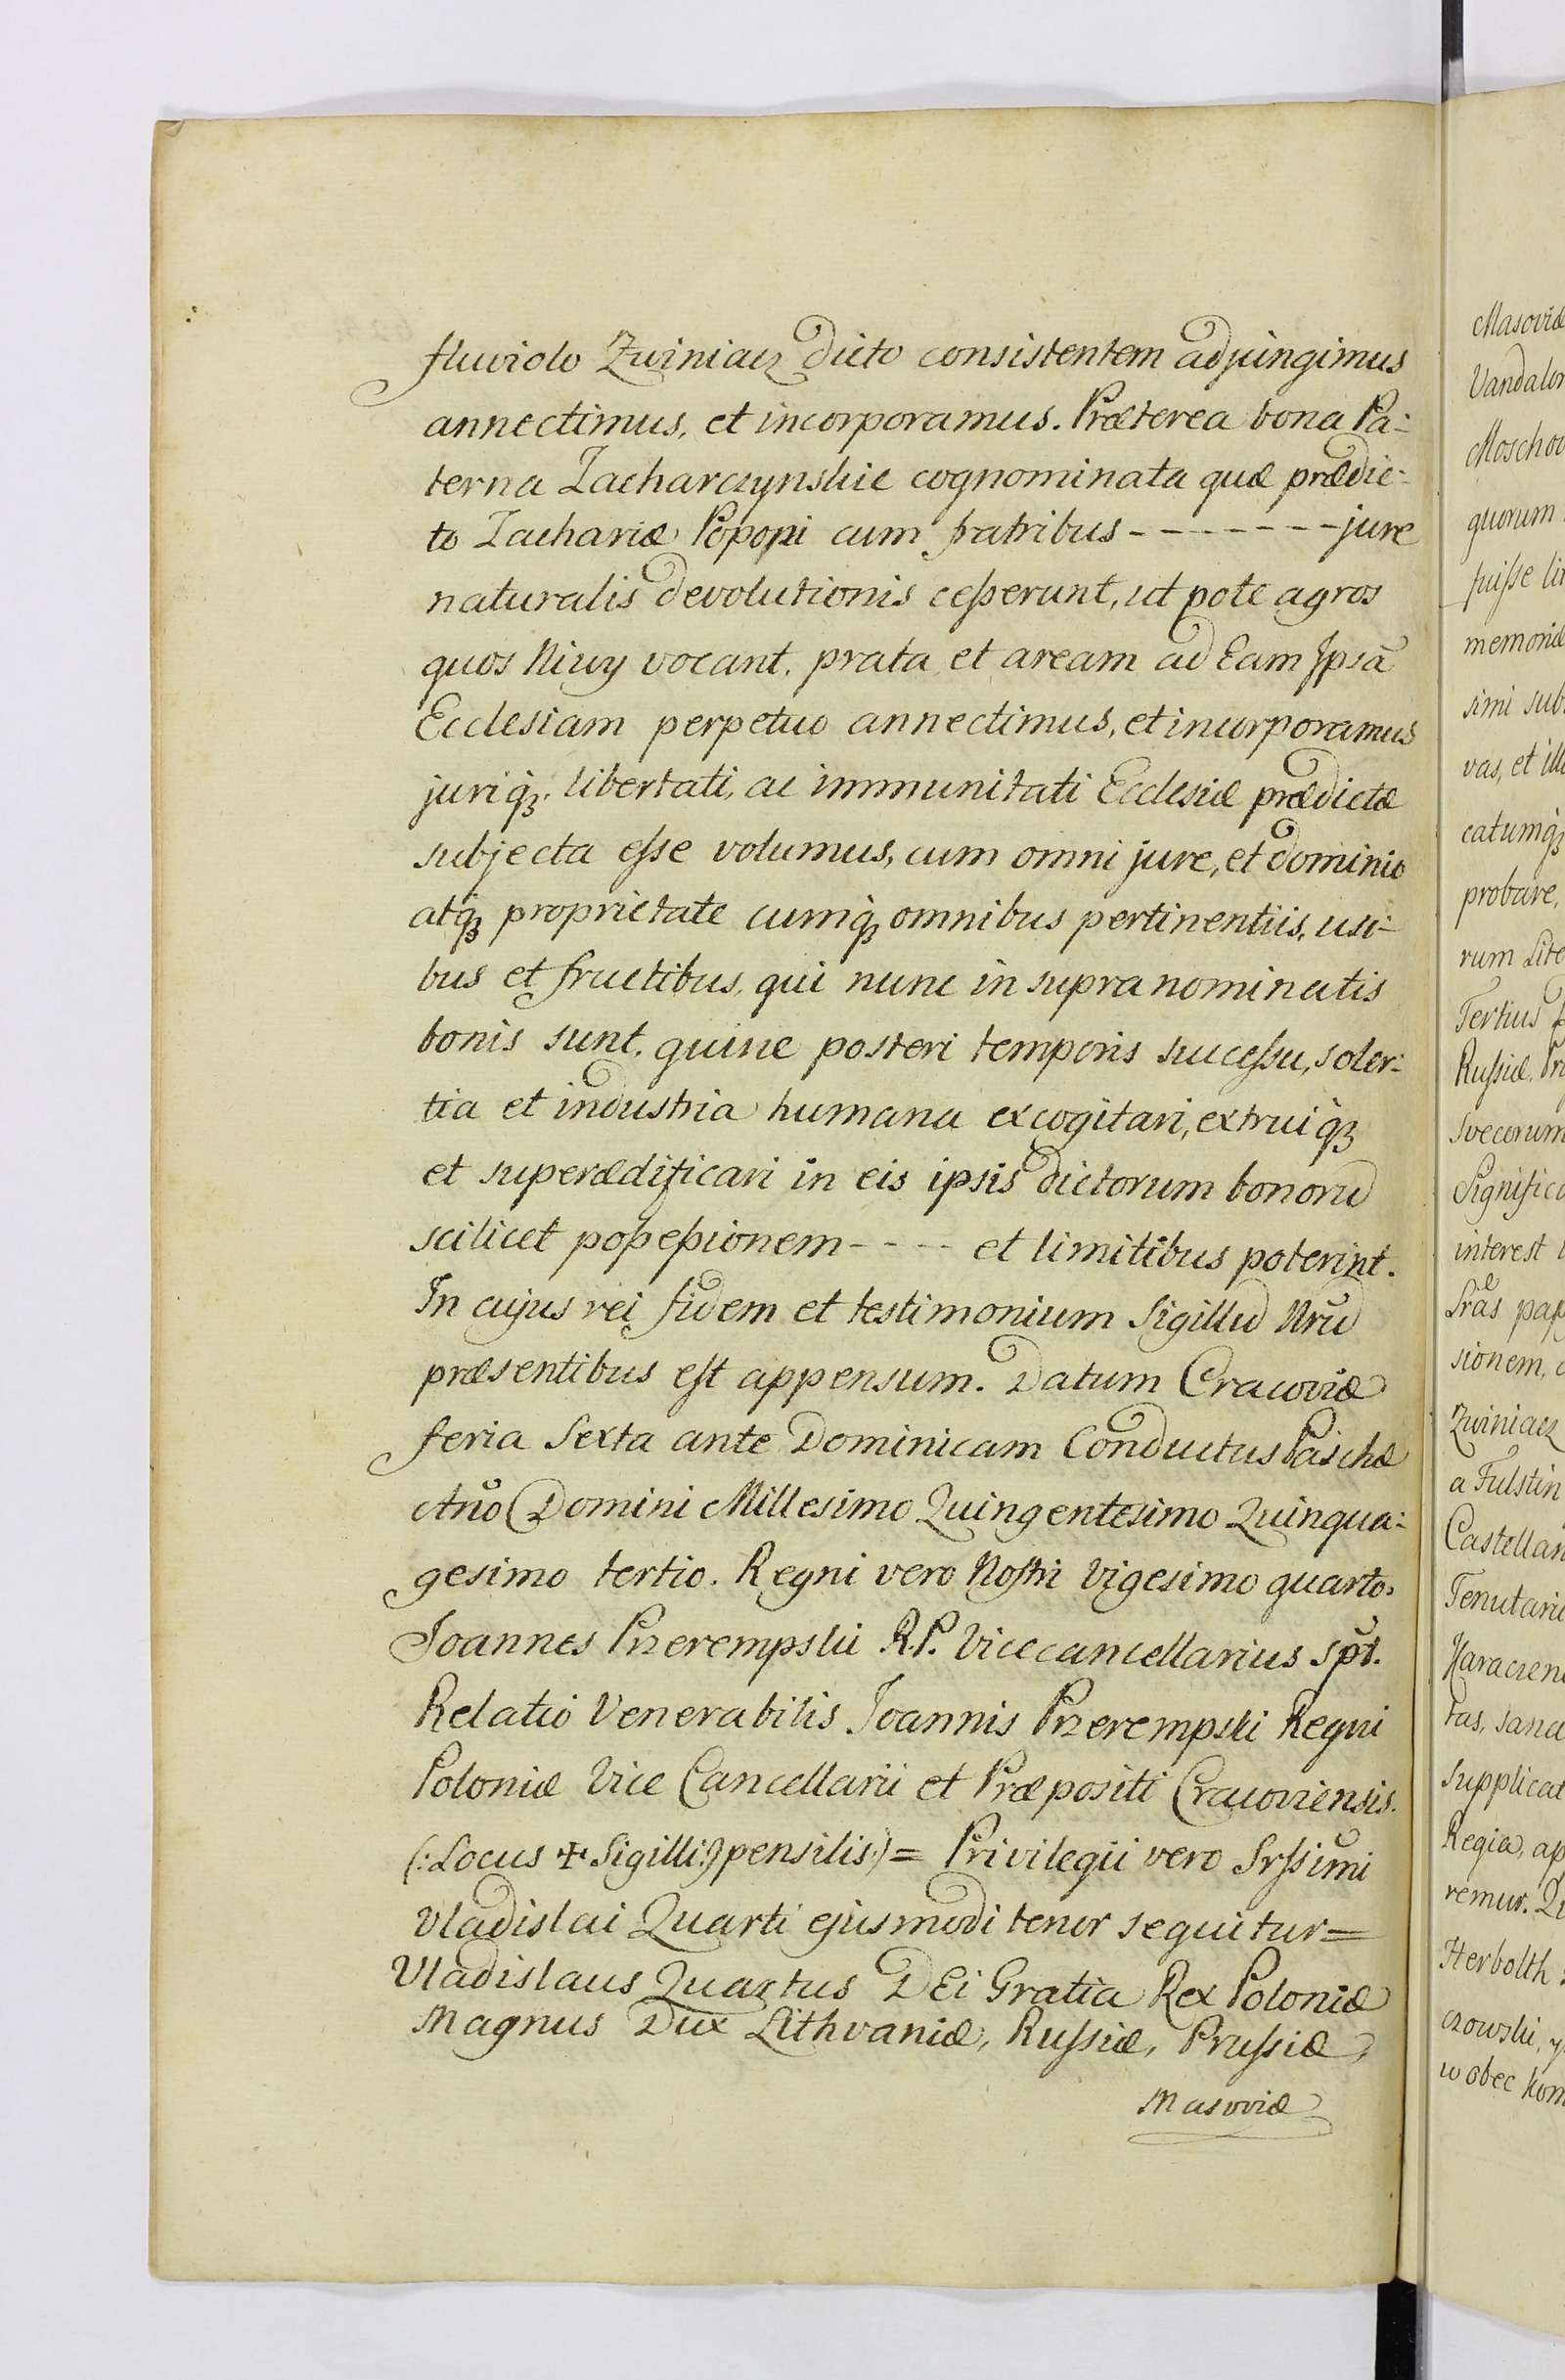 fluviolo Zwiniacz dicto consistentem adjungimus
annectimus, et incorporamus. Præterea bona Pa-
terna Zacharczynskie cognominata quæ prædic-
to Zachariæ Popopi cum fratribus - - - - - - - jure
naturalis devolutionis cesserunt, ut pote agros
quos Niwy vocant, prata et aream ad Eam Ipsã
Ecclesiam perpetuo annectimus, et incorporamus
juriq̃ꝫ. libertati, ac immunitati Ecclesiæ prædictæ
subjecta esse volumus, cum omni jure, et dominio
atq̃ꝫ proprietate cumq̃ꝫ omnibus pertinentiis, usi-
bus et fructibus, qui nunc in supra nominatis
bonis sunt, quive posteri temporis successu, soler-
tia et industria humana excogitari, extrui q̃ꝫ
et superædificari in eis ipsis dictorum bonorũ
scilicet possessionem - - - - et limitibus poterint.
In cujus rei fidem et testimonium Sigillũ Nrũ
præsentibus est appensum. Datum Cracoviæ
feria Sexta ante Dominicam Conductus Paschæ
Año Domini Millesimo Quingentesimo Quinqua-
gesimo tertio. Regni vero Nostri Vigesimo quarto.
Joannes Przerempski R. P. Vicecancellarius spt.
Relatio Venerabilis Joannis Przerempski Regni
Poloniæ Vice Cancellarii et Præpositi Cracoviensis.
(: Locus ✠ Sigilli :) pensilis :) = Privilegii vero Srssimi
Vladislai Quarti ejusmodi tenor sequitur =
Vladislaus Quartus DEi Gratia Rex Poloniæ
Magnus Dux Lithvaniæ, Russiæ, Prussiæ,
Masoviæ
Masoviæ
Vandalor
Moschov
quorum
fuisse li
memoriæ
simi sub
vas, et ill
catumq̃ꝫ
probare,
rum Lite
Tertius
Russiæ, Pr
Svecorum
Significa
interest
Lrãs pap
sionem,
Zwiniacz
a Fulstin
Castellan
Tenutari
Karaczen
tas, sanc
supplicat
Regia, ap
remur. Qu
Herbolth
czowski,
wobec kom